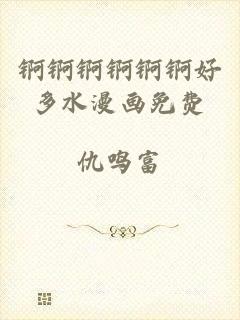 锕锕锕锕锕锕好
多水漫画免费
仇鸣富